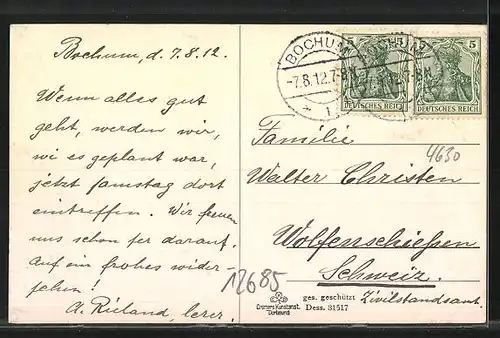 Bochum, d. 7.8.12.
Wenn alles gut
geht, werden wir,
wi es geplant war,
jetzt samstag dort
eintreffen. Wir freuen
uns schon ser darauf.
Auf ein frohes wider
sehen!
A. Rieland, lerer.
BOCHUM
-7.8.12.7-8N
* 1.
5 5
DEUTSCHES REICH
5
DEUTSCHES REICH
Familie
4630
Walter Christen
Wolfenschießen
Schweiz.
Zivilstandsamt.
12685
Cramers Kunstanst.
Dortmund
ges. geschützt
Dess. 31517